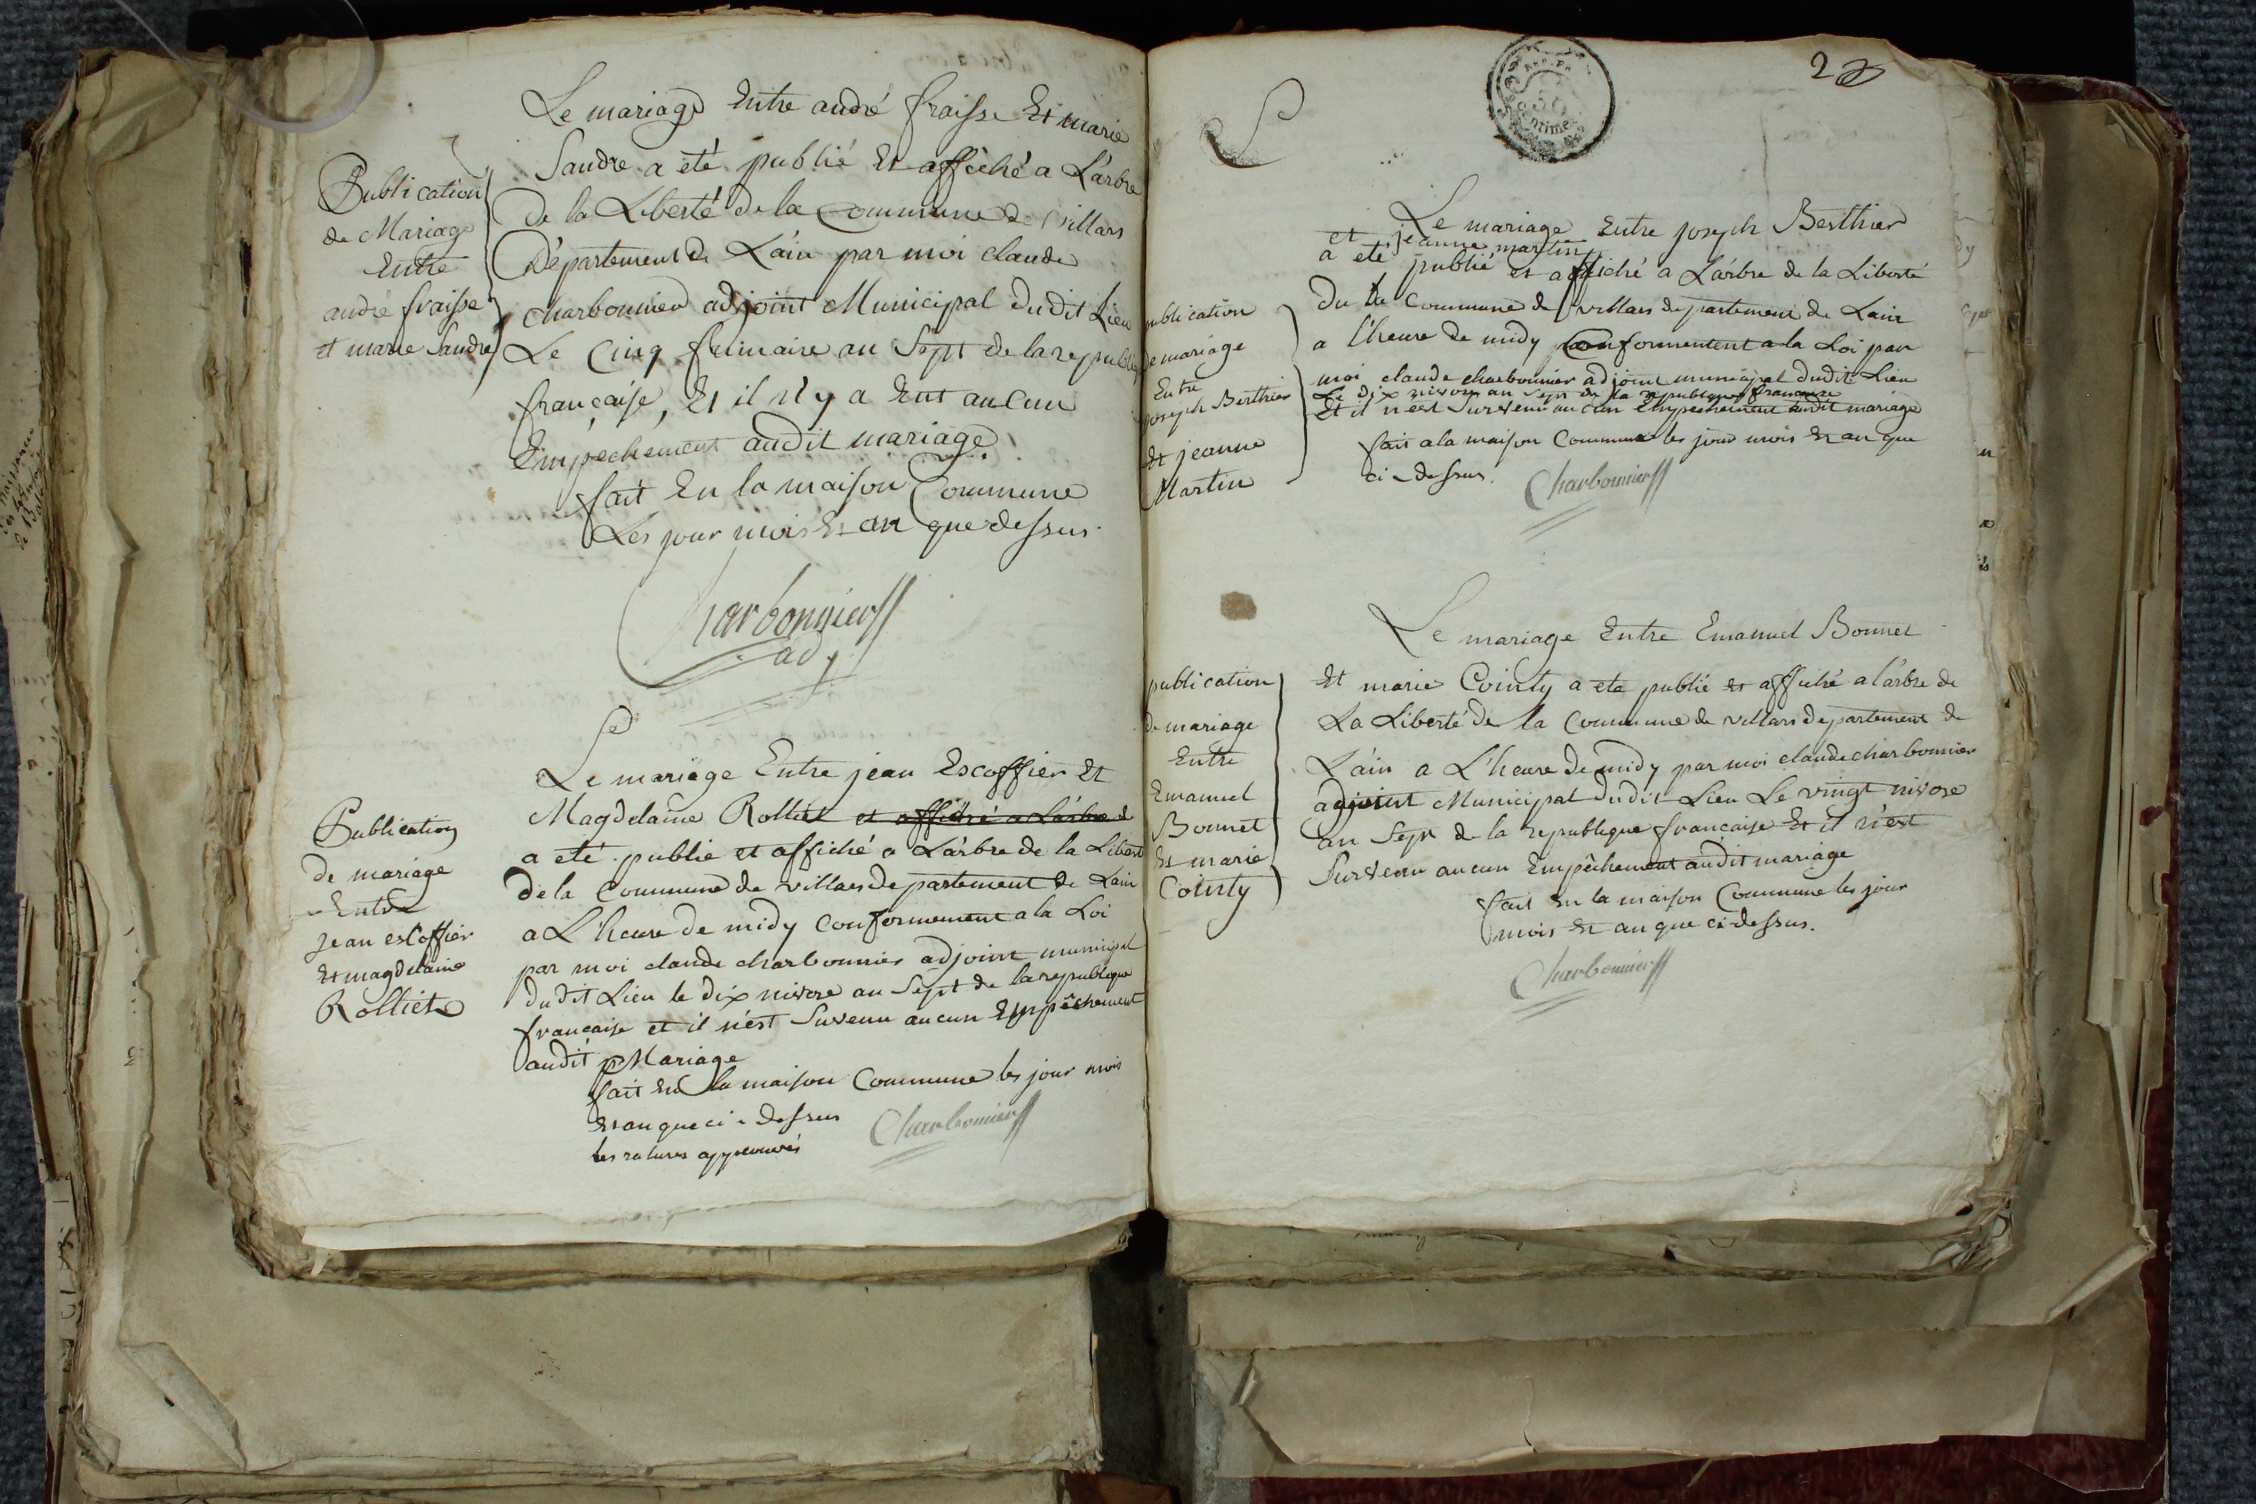 Publication
de Mariage
Entre
andré fraisse
et marie Sandre
Le mariage Entre andré fraisse Et marie
Sandre a eté publié Et affiché a L'arbre
De la Liberté de la Commune de villars
Département de L'ain par moi claude
charbonnier adjoint Municipal dudit Lieu
Le Cinq frimaire an Sept de la republiq
française, Et il n'y a Eut aucun
Empechement audit mariage
fait En la maison Commune
Les jour mois Et an que dessus
Charbonnier
adj
Publication
de mariage
Entre
Jean escoffier
Et magdelaine
Rolliet
Le mariage Entre jean Escoffier Et
Magdelaine Rolliet et affiché a L'arbre d
a eté publié et affiché a L'arbre de la Liberté
de la Commune de villars departement de Lain
a L'heure de midy conformement a la Loi
par moi claude charbonnier adjoint municipal
dudit Lieu le dix nivose an Sept de la republique
française et il n'est Survenu aucun Empêchement
audit Mariage
fait En la maison Commune les jour mois
Et an que ci-dessus
les ratures approuvés
Charbonnier
centimes
publication
de mariage
Entre
joseph Berthier
Et jeanne
Martin
Le mariage Entre joseph Berthier
et jeanne martin
a eté publié et affiché a L'arbre de la Liberté
Du la Commune de villars departement de Lain
a l'heure de midy conformentent a la Loi par
moi claude charbonnier adjoint municipal dudit Lieu
Le dix nivose an Sept de la republique française
Et il n'est Survenu aucun Empechement audit mariage
fait a la maison Commune les jour mois Et an que
ci-dessus.
Charbonnier
publication
de mariage
Entre
Emanuel
Bonnet
Et marie
Cointy
Le mariage Entre Emanuel Bonnet
Et marie Cointy a eté publié et affiché a l'arbre de
La Liberté de la Commune de villars departement de
L'ain a L'heure de midy par moi claude charbonnier
adjoint Municipal dudit Lieu Le vingt nivose
an Sept de la republique française Et il n'est
Survenu aucun Empêchement audit mariage
fait En la maison Commune les jour
mois Et an que ci-dessus.
Charbonnier